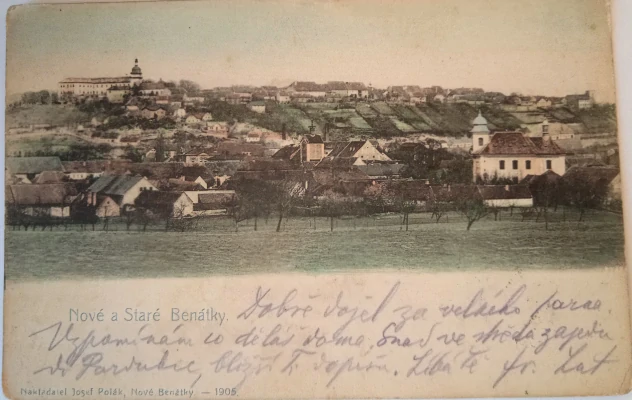 Nové a Staré Benátky.
Dobře dojel za velkého parna.
Vzpomínám co děláš doma. Snad ve středu zajedu
do Pardubic, bližší Ti dopíšu. Líbá Tě
Nakladatel Josef Polák, Nové Benátky. — 1905